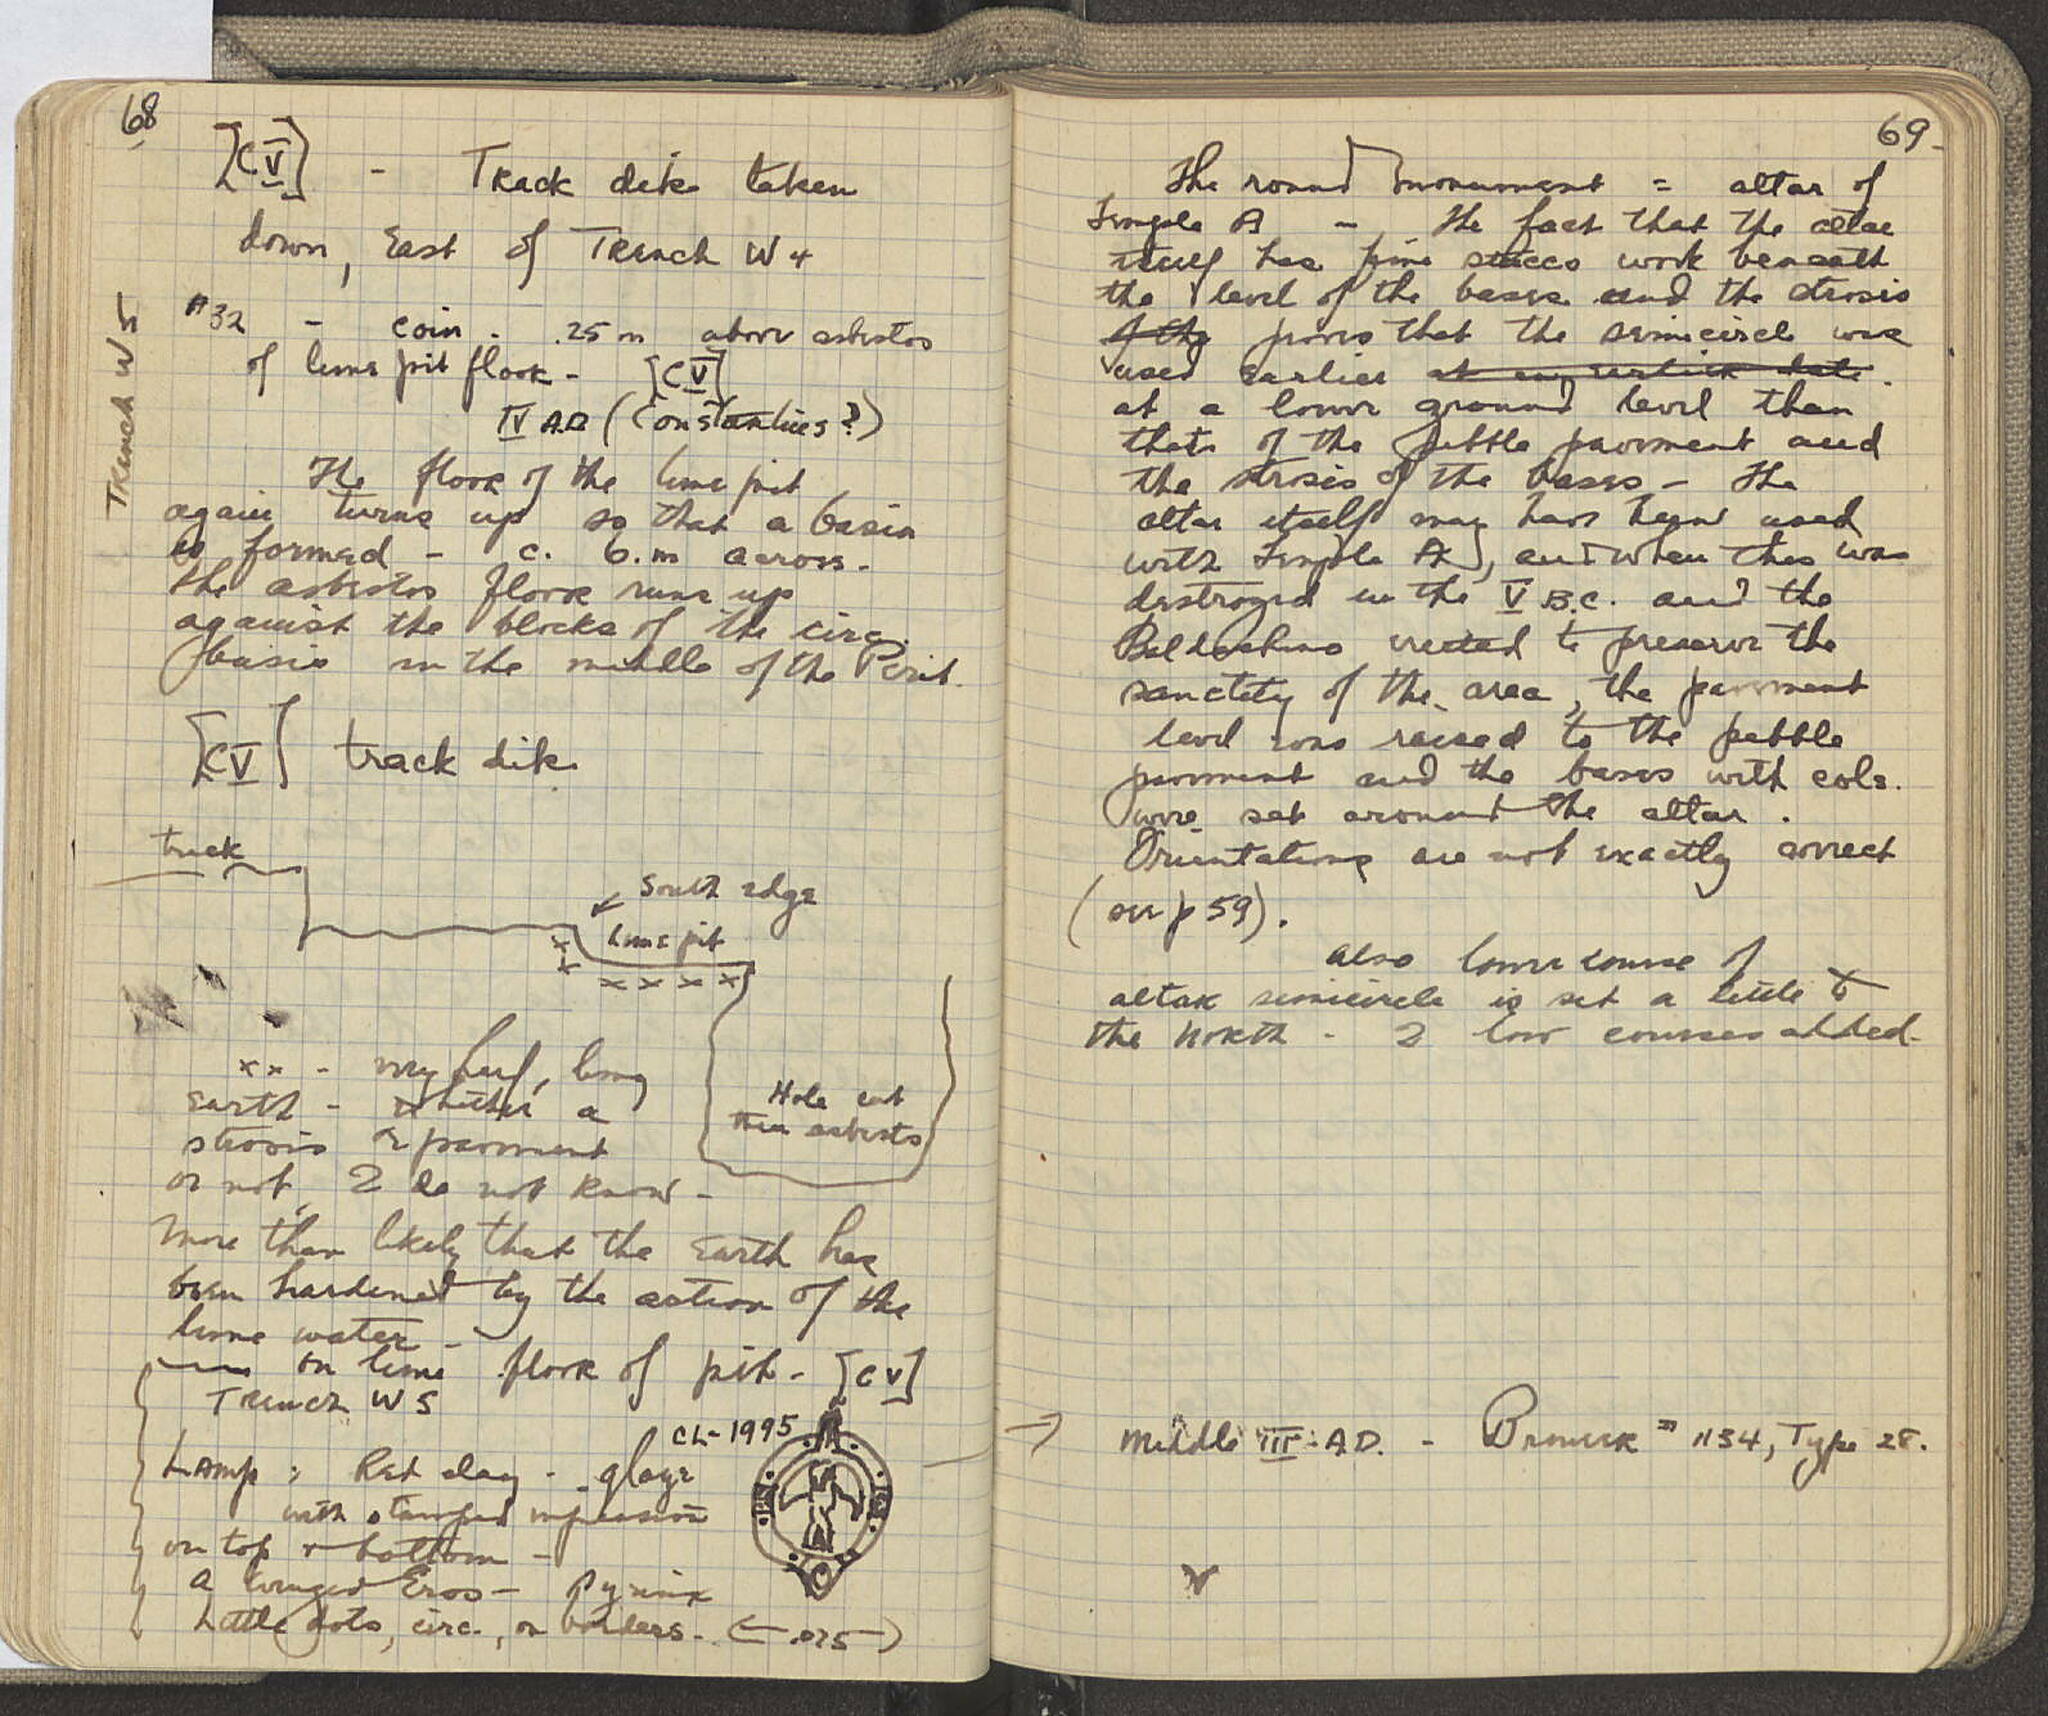 68
[C V] - Track dike taken
down, East of Trench W 4
Trench W 5
#32 - coin - .25 m above asbestos
of lime pit floor - [C V]
IV A.D. (Constantius?)
The floor of the lime pit
again turns up so that a basin
is formed - c. 6.m across.
The asbestos floor runs up
against the blocks of the circ.
basis in the middle of the Perib.
[C V] track dike
track
South edge
lime pit
x x x x x x
Hole cut
thru asbestos
xx - very hard, limy
Earth - whether a
strosis or pavement
or not, I do not know -
More than likely that the Earth has
been hardened by the action of the
lime water -
on lime floor of pit - [C V]
Trench W 5
CL-1995
Lamp: Red clay - glaze
with stamped impression
on top & bottom -
a winged Eros -
Little dots, circ., on borders. (← .075 →)
69
The round monument = altar of
Temple A - The fact that the altar
itself has fine stucco work beneath
the level of the bases and the strosis
of the proves that the semicircle was
used earlier at any earlier date.
at a lower ground level than
that of the pebble pavement and
the strosis of the bases - The
altar itself may have been used
with Temple A, and when this was
destroyed in the V B.C. and the
Baldachino erected to preserve the
sanctity of the area, the pavement
level was raised to the pebble
pavement and the bases with cols.
were set around the altar.
Orientations are not exactly correct
(see p 59).
Also lower course of
altar semicircle is set a little to
the North - 2 low courses added.
→ Middle III A.D. - Broneer # 1134, Type 28.